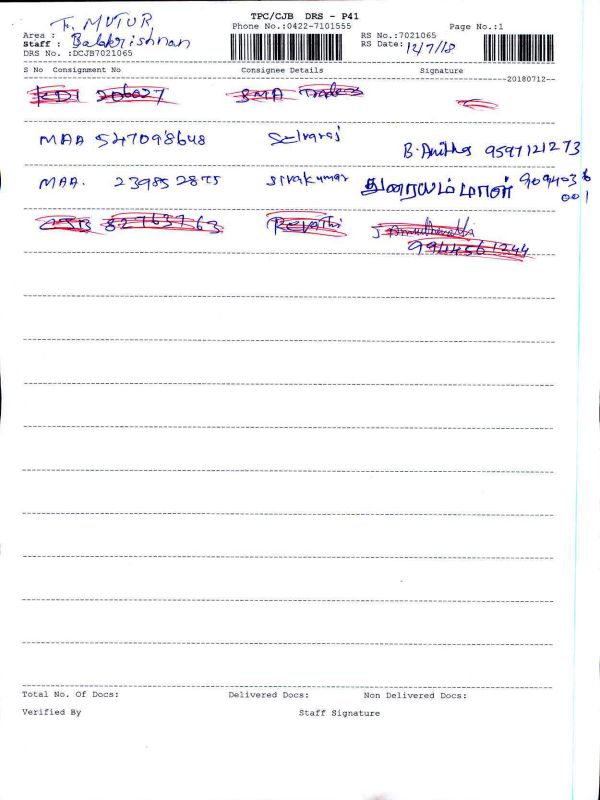 TPC/CJB DRS - P41
T. MUTUR
Phone No.:0422-7101555
Page No.:1
Area :
RS No.:7021065
Staff : Balakrishnan
RS Date: 12/7/18
DRS No. :DCJB7021065
S No Consignment No Consignee Details Signature
20180712
KDI 206027 SMA
MAA 547098648 Selvaraj B. Anitha 9597121273
MAA. 239852875 Sivakumar 9094036
001
827637163 Revathi J
9944561244
Total No. Of Docs: Delivered Docs: Non Delivered Docs:
Verified By Staff Signature